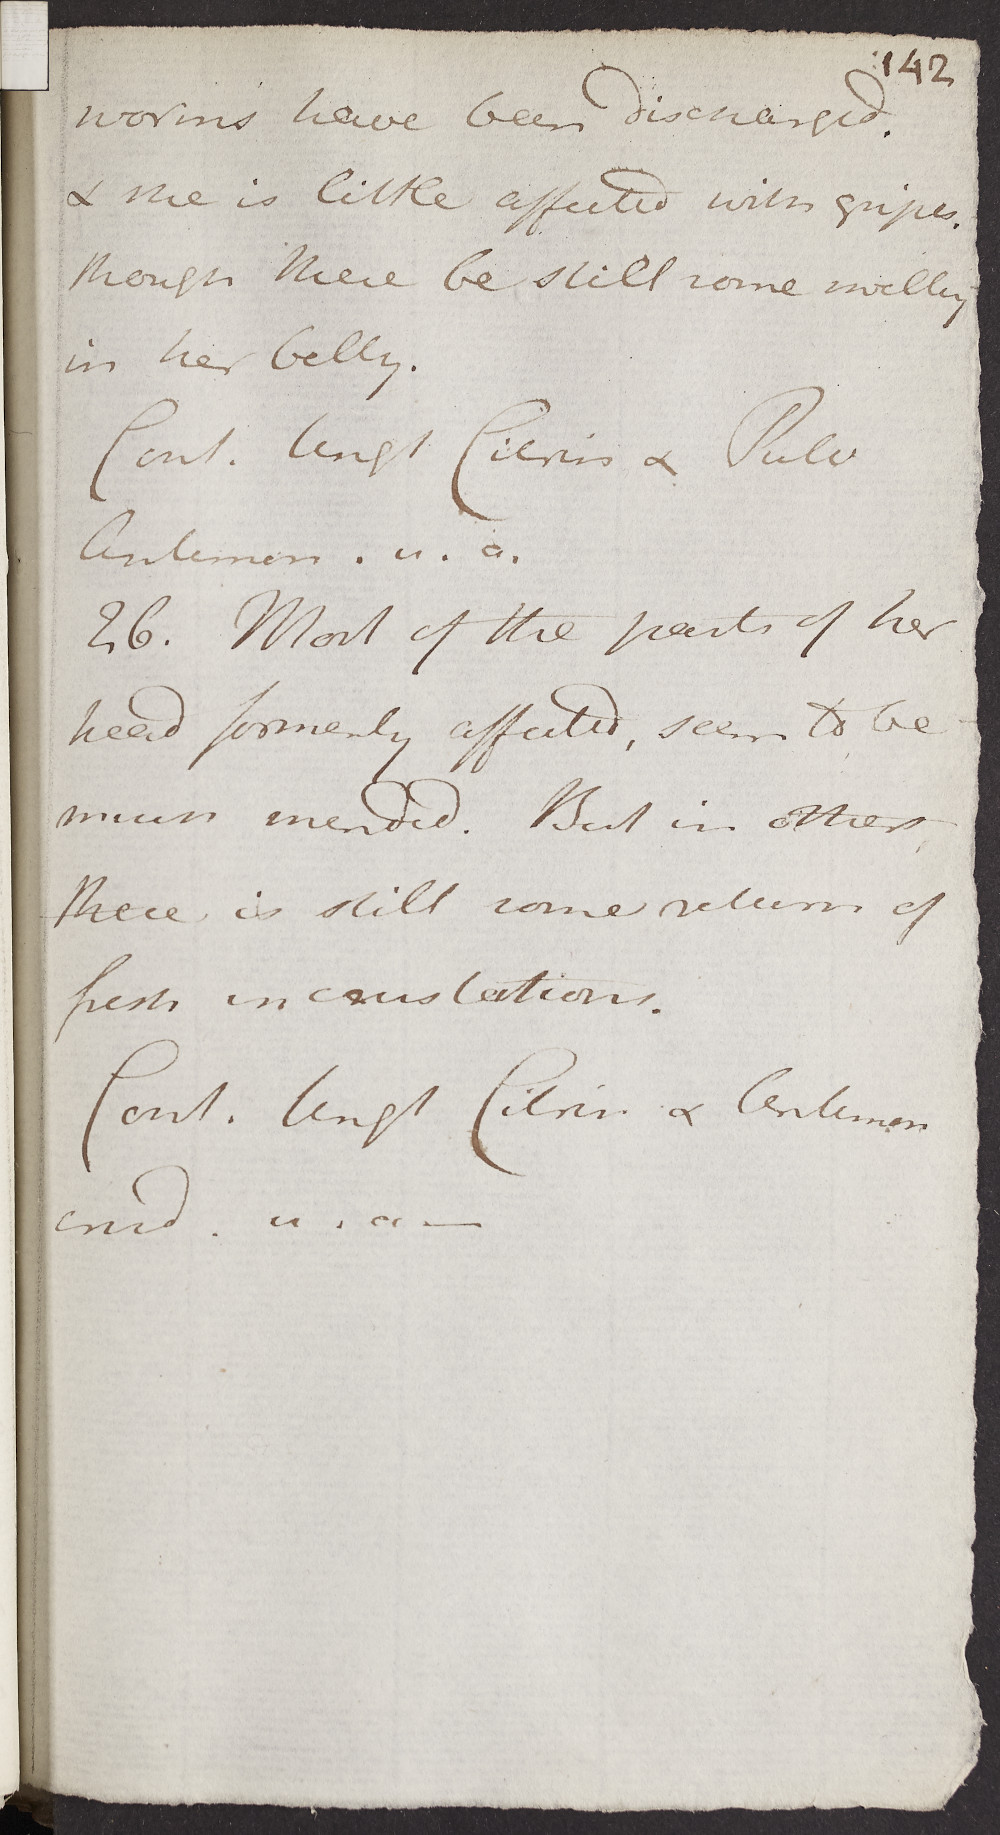 142
worms have been discharged.
& she is little affected with gripes.
though there be still some swelling
in her belly.
Cont. Ungt Citrin & Pulv
Antimon . u . a.
26. Most of the parts of her
head formerly affected, seem to be
much mended. But in others
there is still some return of
fresh incrustations.
Cont. Ungt Citrin & Antimon
crud . u . a —